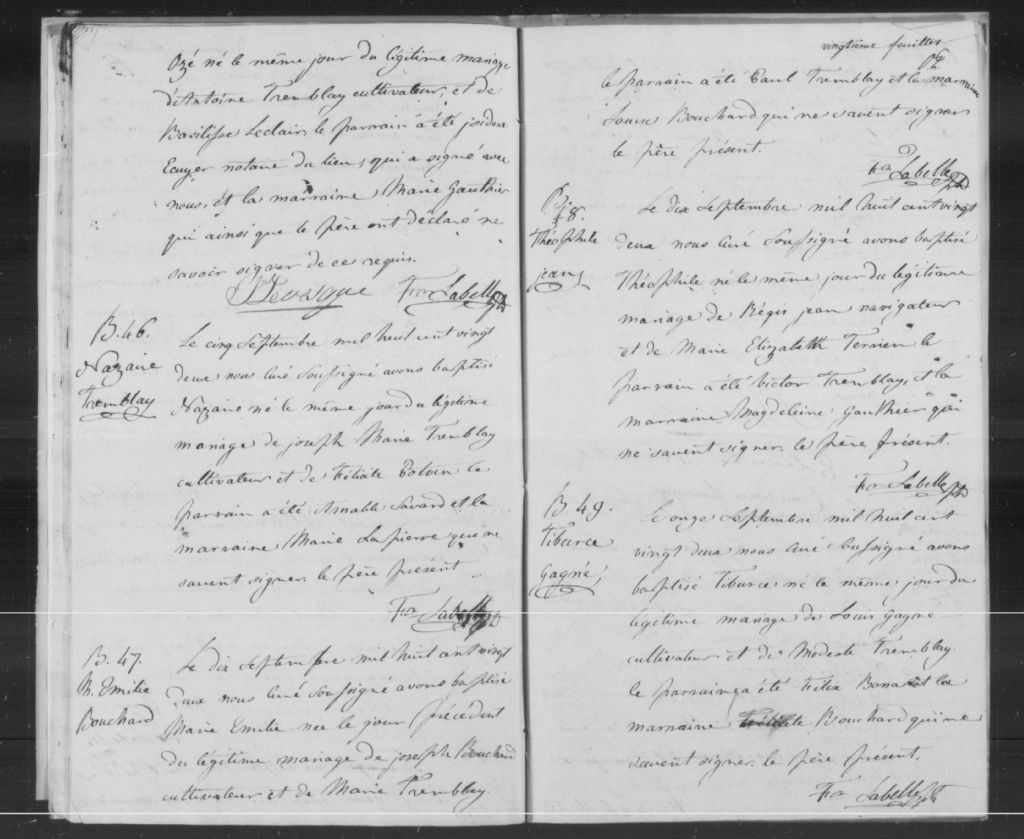 Ozé né le même jour du légitime mariage
d'Antoine Tremblay cultivateur, et de
Basilisse Leclair, le parrain a été
Ecuyer notaire du lieu, qui a signé avec
nous, et la marraine Marie Gauthier
qui ainsi que le père ont déclaré ne
savoir signer de ce requis.
Labelle
B. 46.
Nazaire
Tremblay
Le cinq Septembre mil huit cent vingt
deux nous curé Soussigné avons baptisé
Nazaire né le même jour du légitime
mariage de joseph Marie Tremblay
cultivateur et de Félicité Potvin le
parrain a été Amable Savard et la
marraine Marie Lapierre que ne
savent signer le père présent
Labelle
B. 47.
M. Emilie
Bouchard
Le dix Septembre mil huit cent vingt
deux nous curé Soussigné avons baptisé
Marie Emilie née le jour précédent
du légitime mariage de joseph Bouchard
cultivateur et de Marie Tremblay.
vingtième feuillet
le parrain a été Paul Tremblay et la marraine
Louise Bouchard qui ne savent signer
le père présent.
Labelle
B. 48.
Théophile
jean
Le dix Septembre mil huit cent vingt
deux nous curé Soussigné avons baptisé
Théophile né le même jour du légitime
mariage de Régis jean navigateur
et de Marie Elizabeth Terrien le
parrain a été Victor Tremblay, et la
marraine Magdeleine Gauthier qui
ne savent signer le père présent.
Labelle
B. 49.
Tiburce
Gagné
Le onze Septembre mil huit cent
vingt deux nous curé Soussigné avons
baptisé Tiburce né le même jour du
légitime mariage de Louis Gagné
cultivateur et de Modeste Tremblay
le parrain a été Félix Bona et la
marraine Bouchard qui ne
savent signer le père présent.
Labelle